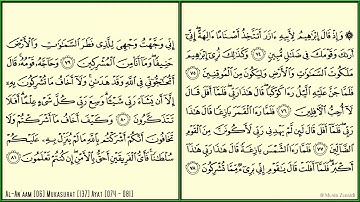 وَإِذْ قَالَ إِبْرَٰهِيمُ لِأَبِيهِ ءَازَرَ أَتَتَّخِذُ أَصْنَامًا ءَالِهَةً إِنِّىٓ
أَرَىٰكَ وَقَوْمَكَ فِى ضَلَٰلٍ مُّبِينٍ ٧٤ وَكَذَٰلِكَ نُرِىٓ إِبْرَٰهِيمَ
مَلَكُوتَ ٱلسَّمَٰوَٰتِ وَٱلْأَرْضِ وَلِيَكُونَ مِنَ ٱلْمُوقِنِينَ ٧٥
فَلَمَّا جَنَّ عَلَيْهِ ٱلَّيْلُ رَءَا كَوْكَبًا قَالَ هَٰذَا رَبِّى فَلَمَّآ أَفَلَ قَالَ
لَآ أُحِبُّ ٱلْءَافِلِينَ ٧٦ فَلَمَّا رَءَا ٱلْقَمَرَ بَازِغًا قَالَ هَٰذَا
رَبِّى فَلَمَّآ أَفَلَ قَالَ لَئِن لَّمْ يَهْدِنِى رَبِّى لَأَكُونَنَّ مِنَ ٱلْقَوْمِ
ٱلضَّآلِّينَ ٧٧ فَلَمَّا رَءَا ٱلشَّمْسَ بَازِغَةً قَالَ هَٰذَا رَبِّى هَٰذَآ
أَكْبَرُ فَلَمَّآ أَفَلَتْ قَالَ يَٰقَوْمِ إِنِّى بَرِىٓءٌ مِّمَّا تُشْرِكُونَ ٧٨
إِنِّى وَجَّهْتُ وَجْهِىَ لِلَّذِى فَطَرَ ٱلسَّمَٰوَٰتِ وَٱلْأَرْضَ
حَنِيفًا وَمَآ أَنَا۠ مِنَ ٱلْمُشْرِكِينَ ٧٩ وَحَآجَّهُۥ قَوْمُهُۥ قَالَ
أَتُحَٰٓجُّوٓنِّى فِى ٱللَّهِ وَقَدْ هَدَىٰنِ وَلَآ أَخَافُ مَا تُشْرِكُونَ بِهِۦٓ
إِلَّآ أَن يَشَآءَ رَبِّى شَيْـًٔا وَسِعَ رَبِّى كُلَّ شَىْءٍ عِلْمًا أَفَلَا
تَتَذَكَّرُونَ ٨٠ وَكَيْفَ أَخَافُ مَآ أَشْرَكْتُمْ وَلَا
تَخَافُونَ أَنَّكُمْ أَشْرَكْتُم بِٱللَّهِ مَا لَمْ يُنَزِّلْ بِهِۦ عَلَيْكُمْ
سُلْطَٰنًا فَأَىُّ ٱلْفَرِيقَيْنِ أَحَقُّ بِٱلْأَمْنِ إِن كُنتُمْ تَعْلَمُونَ ٨١
Al-An'aam (06) Muhasurat (137) Ayat (074 - 081)